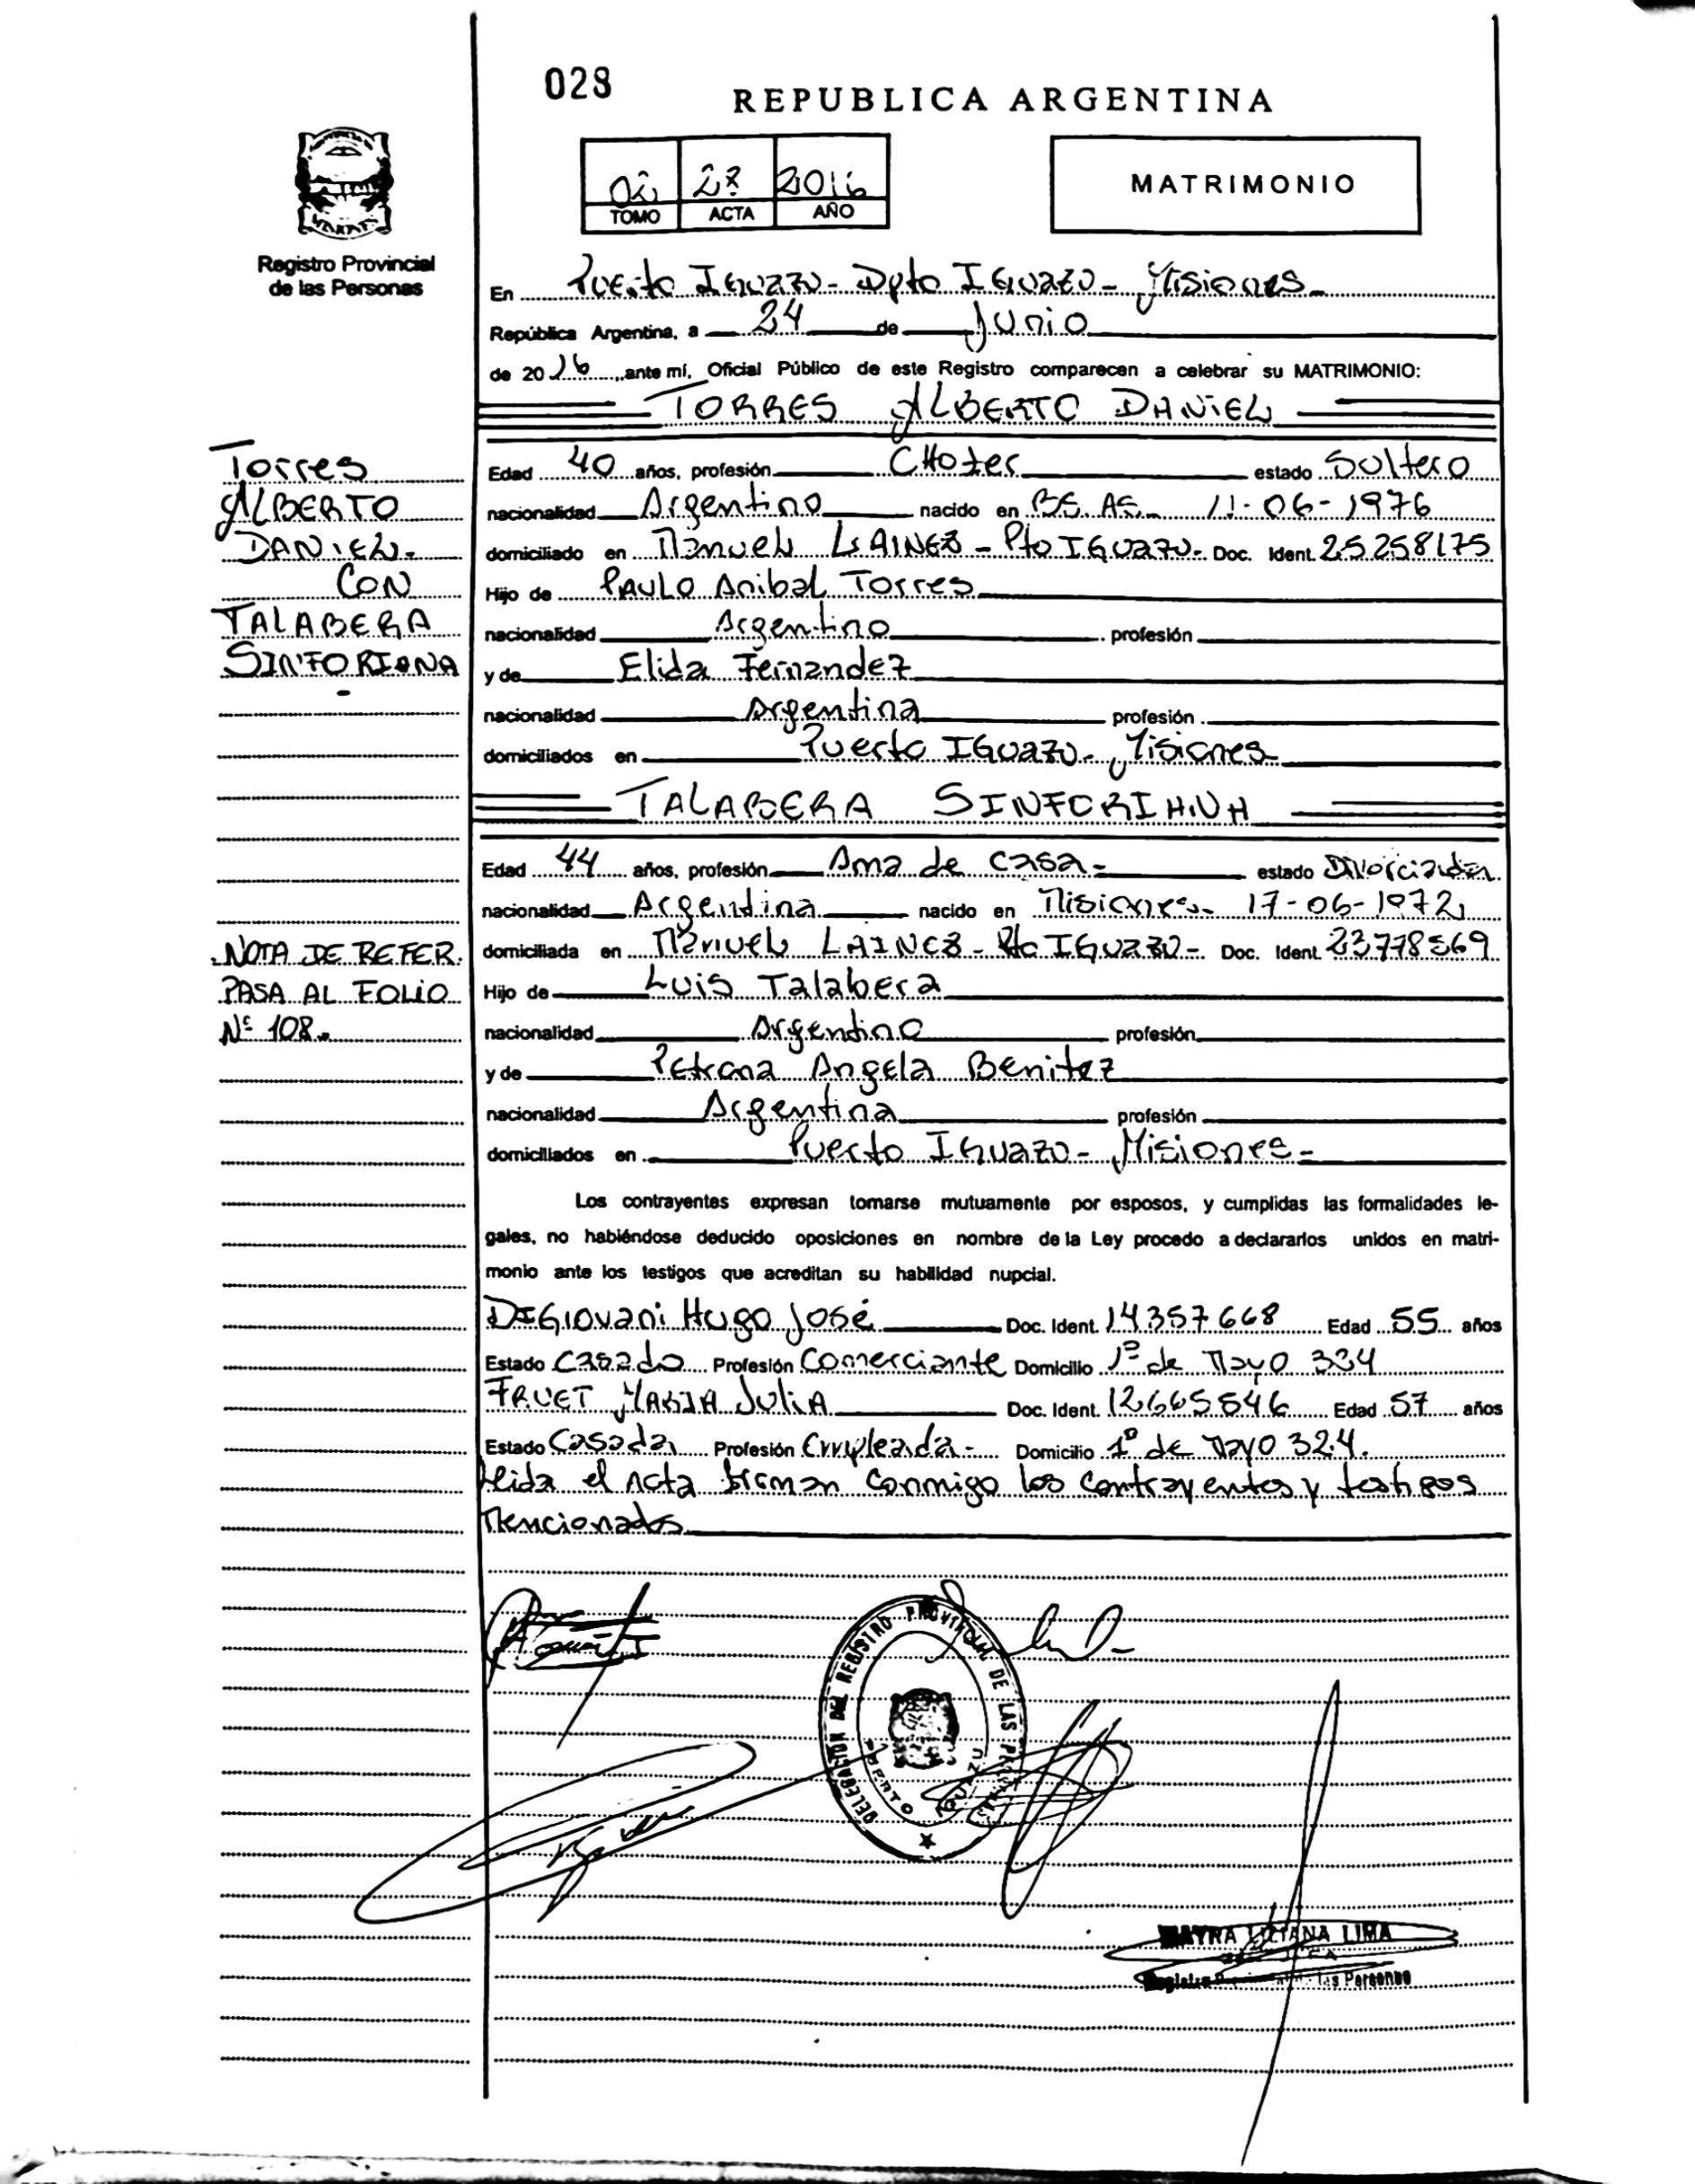 028
REPUBLICA ARGENTINA
02 28 2016
TOMO ACTA AÑO
MATRIMONIO
Registro Provincial
de las Personas
En Puerto IGuazu - Dpto IGuazu - Misiones -
República Argentina, a 24 de Junio
de 2016, ante mí, Oficial Público de este Registro comparecen a celebrar su MATRIMONIO:
TORRES ALBERTO DANIEL
Torres
ALBERTO
DANIEL.
CON
TALABERA
SINFORIANA
-
Edad 40 años, profesión CHOfer estado Soltero
nacionalidad Argentino nacido en BS. AS - 11-06-1976
domiciliado en Manuel LAINEZ - Pto IGuazu - Doc. Ident. 25258175
Hijo de PAULO Anibal Torres
nacionalidad Argentino profesión
y de Elida Fernandez
nacionalidad Argentina profesión
domiciliados en Puerto IGuazu - Misiones
TALABERA SINFORIANA
Edad 44 años, profesión Ama de casa - estado Divorciada
nacionalidad Argentina nacido en Misiones - 17-06-1972
NOTA DE REFER.
PASA AL FOLIO
Nº 108.
domiciliada en Manuel LAINEZ - Pto IGuazu - Doc. Ident. 23778569
Hijo de Luis Talabera
nacionalidad Argentino profesión
y de Petrona Angela Benitez
nacionalidad Argentina profesión
domiciliados en Puerto IGuazu - Misiones -
Los contrayentes expresan tomarse mutuamente por esposos, y cumplidas las formalidades le-
gales, no habiéndose deducido oposiciones en nombre de la Ley procedo a declararlos unidos en matri-
monio ante los testigos que acreditan su habilidad nupcial.
DIGIOvani Hugo José Doc. Ident. 14357668 Edad 55 años
Estado Casado Profesión Comerciante Domicilio 1º de Mayo 334
FRUET MARIA JULIA Doc. Ident. 12665546 Edad 57 años
Estado Casada Profesión Empleada - Domicilio 1º de Mayo 324.
Leida el Acta firman conmigo los contrayentes y testigos
Mencionados
DELEGACION DEL REGISTRO PROVINCIAL DE LAS PERSONAS
PUERTO IGUAZU
LIMA
las Personas